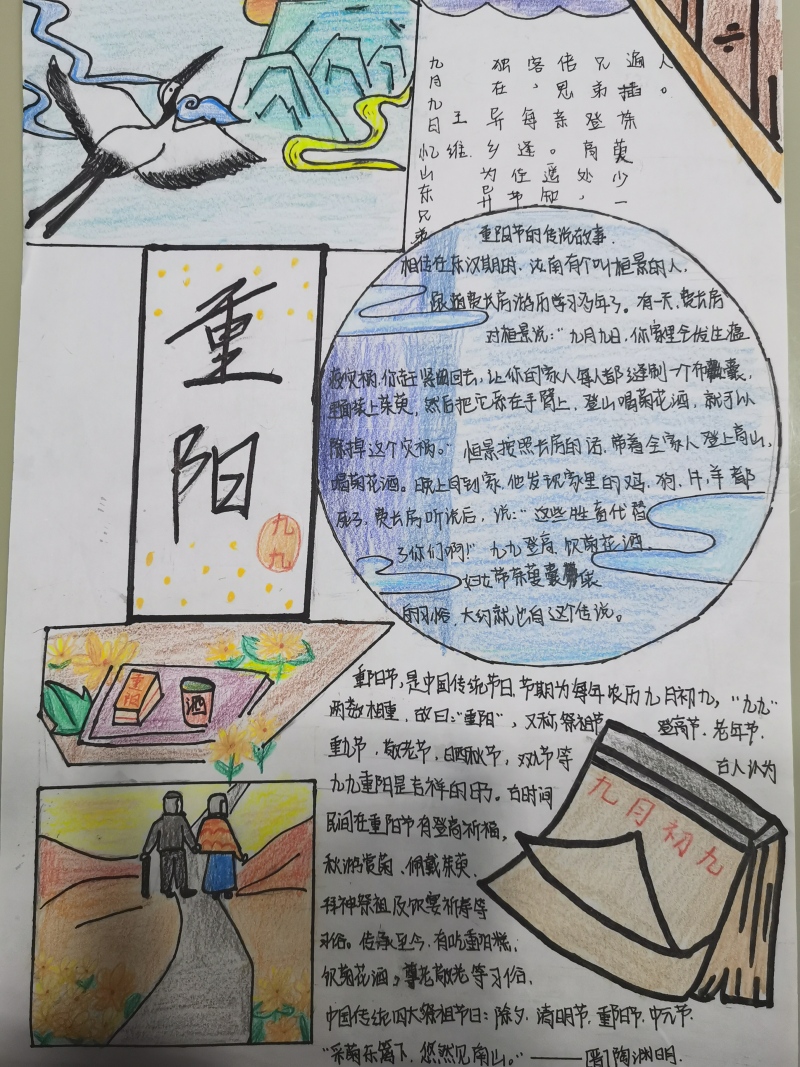 九月九日忆山东兄弟
王维
独在异乡为异
客，每逢佳节
倍思亲。遥知
兄弟登高处，
遍插茱萸少一
人。
重阳
九九
重阳节的传说故事
相传在东汉期时，汝南有个叫恒景的人，
跟随费长房游历学习多年了。有一天，费长房
对恒景说：“九月九日，你家里会发生瘟
疫灾祸，你赶紧回去，让你的家人每人都缝制一个布囊，
里面装上茱萸，然后把它系在手臂上，登山喝菊花酒，就可以
除掉这个灾祸。”恒景按照长房的话，带着全家人登上高山，
喝菊花酒。晚上回到家，他发现家里的鸡、狗、牛、羊都
死了，费长房听说后，说：“这些牲畜代替
了你们啊！”九九登高，饮菊花酒，
妇女带茱萸囊
的习俗，大约就出自这个传说。
重阳
酒
重阳节，是中国传统节日，节期为每年农历九月初九，“九九”
两数相重，故曰：“重阳”，又称祭祖节 登高节、老年节、
重九节，敬老节，晒秋节，双九节等 古人认为
九九重阳是吉祥的日子。古时间
民间在重阳节有登高祈福，
秋游赏菊、佩戴茱萸、
拜神祭祖及饮宴祈寿等
习俗。传承至今，有吃重阳糕，
饮菊花酒，尊老敬老等习俗，
中国传统四大祭祖节日：除夕、清明节、重阳节、中元节
“采菊东篱下，悠然见南山。”——晋陶渊明
九月初九